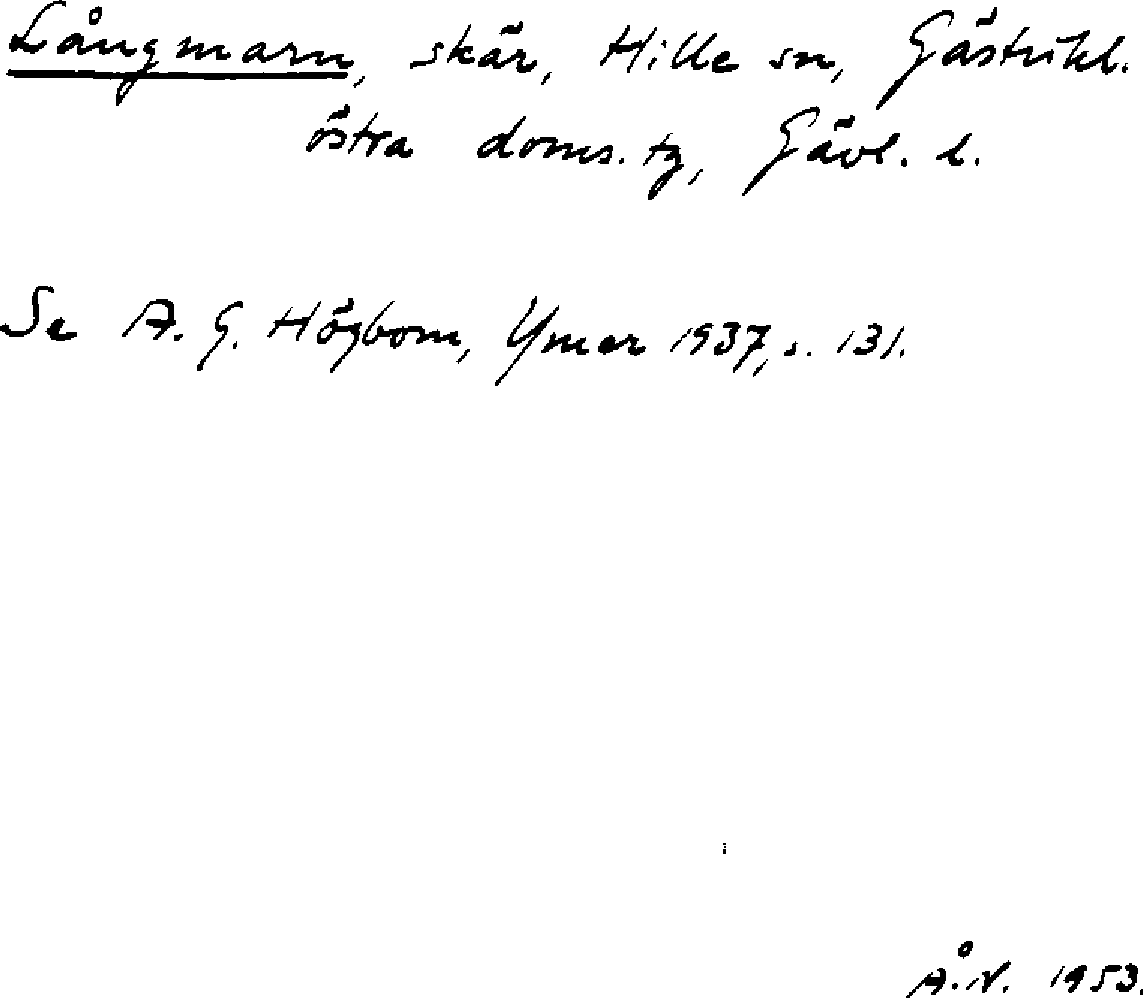 Långmarn, skär, Hille sn, Gästrikl.
östra doms. tg, Gävl. l.
Se A. G. Högbom, Ymer 1937, s. 131.
Å. N. 1953.